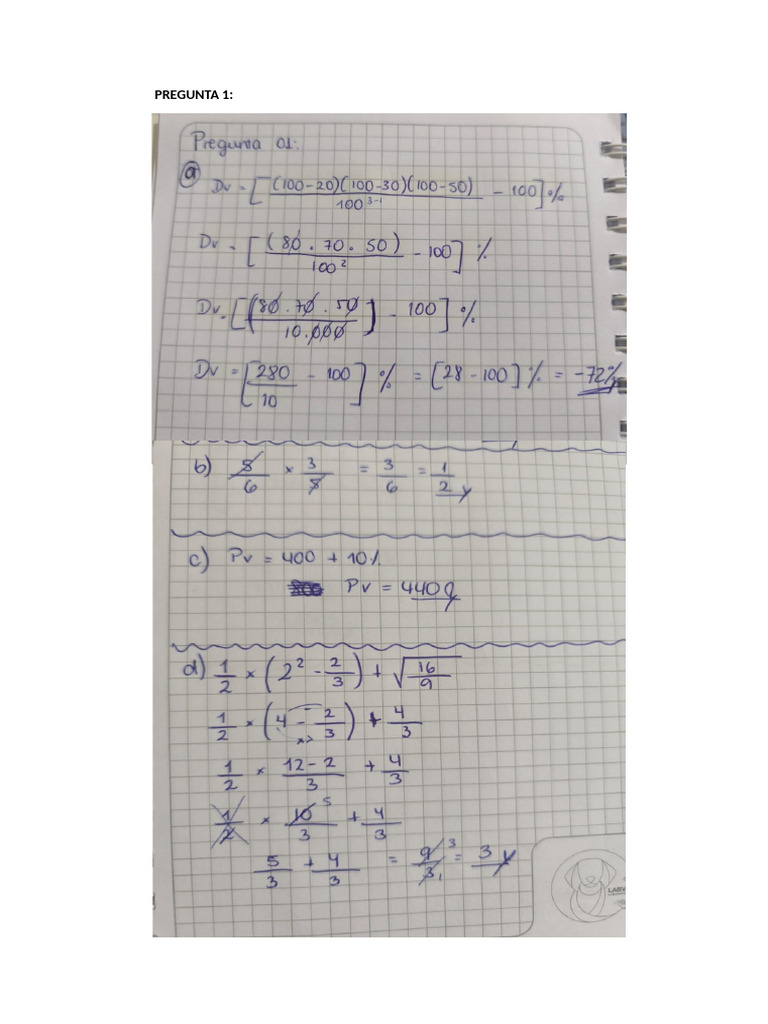 PREGUNTA 1:
Pregunta 01:
a) Dv = [ (100-20)(100-30)(100-50) / 100^(3-1) - 100 ] %
Dv = [ (80 . 70 . 50) / 100² - 100 ] %
Dv = [ (80 . 70 . 50 / 10.000) - 100 ] %
Dv = [ 280 / 10 - 100 ] % = [28 - 100] % = -72%
b) 8/6 × 3/8 = 3/6 = 1/2
c) Pv = 400 + 10%
Pv = 440
d) 1/2 × (2² - 2/3) + √(16/9)
1/2 × (4 - 2/3) + 4/3
1/2 × (12-2)/3 + 4/3
1/2 × 10/3 5 + 4/3
5/3 + 4/3 = 9/3 3 1 = 3